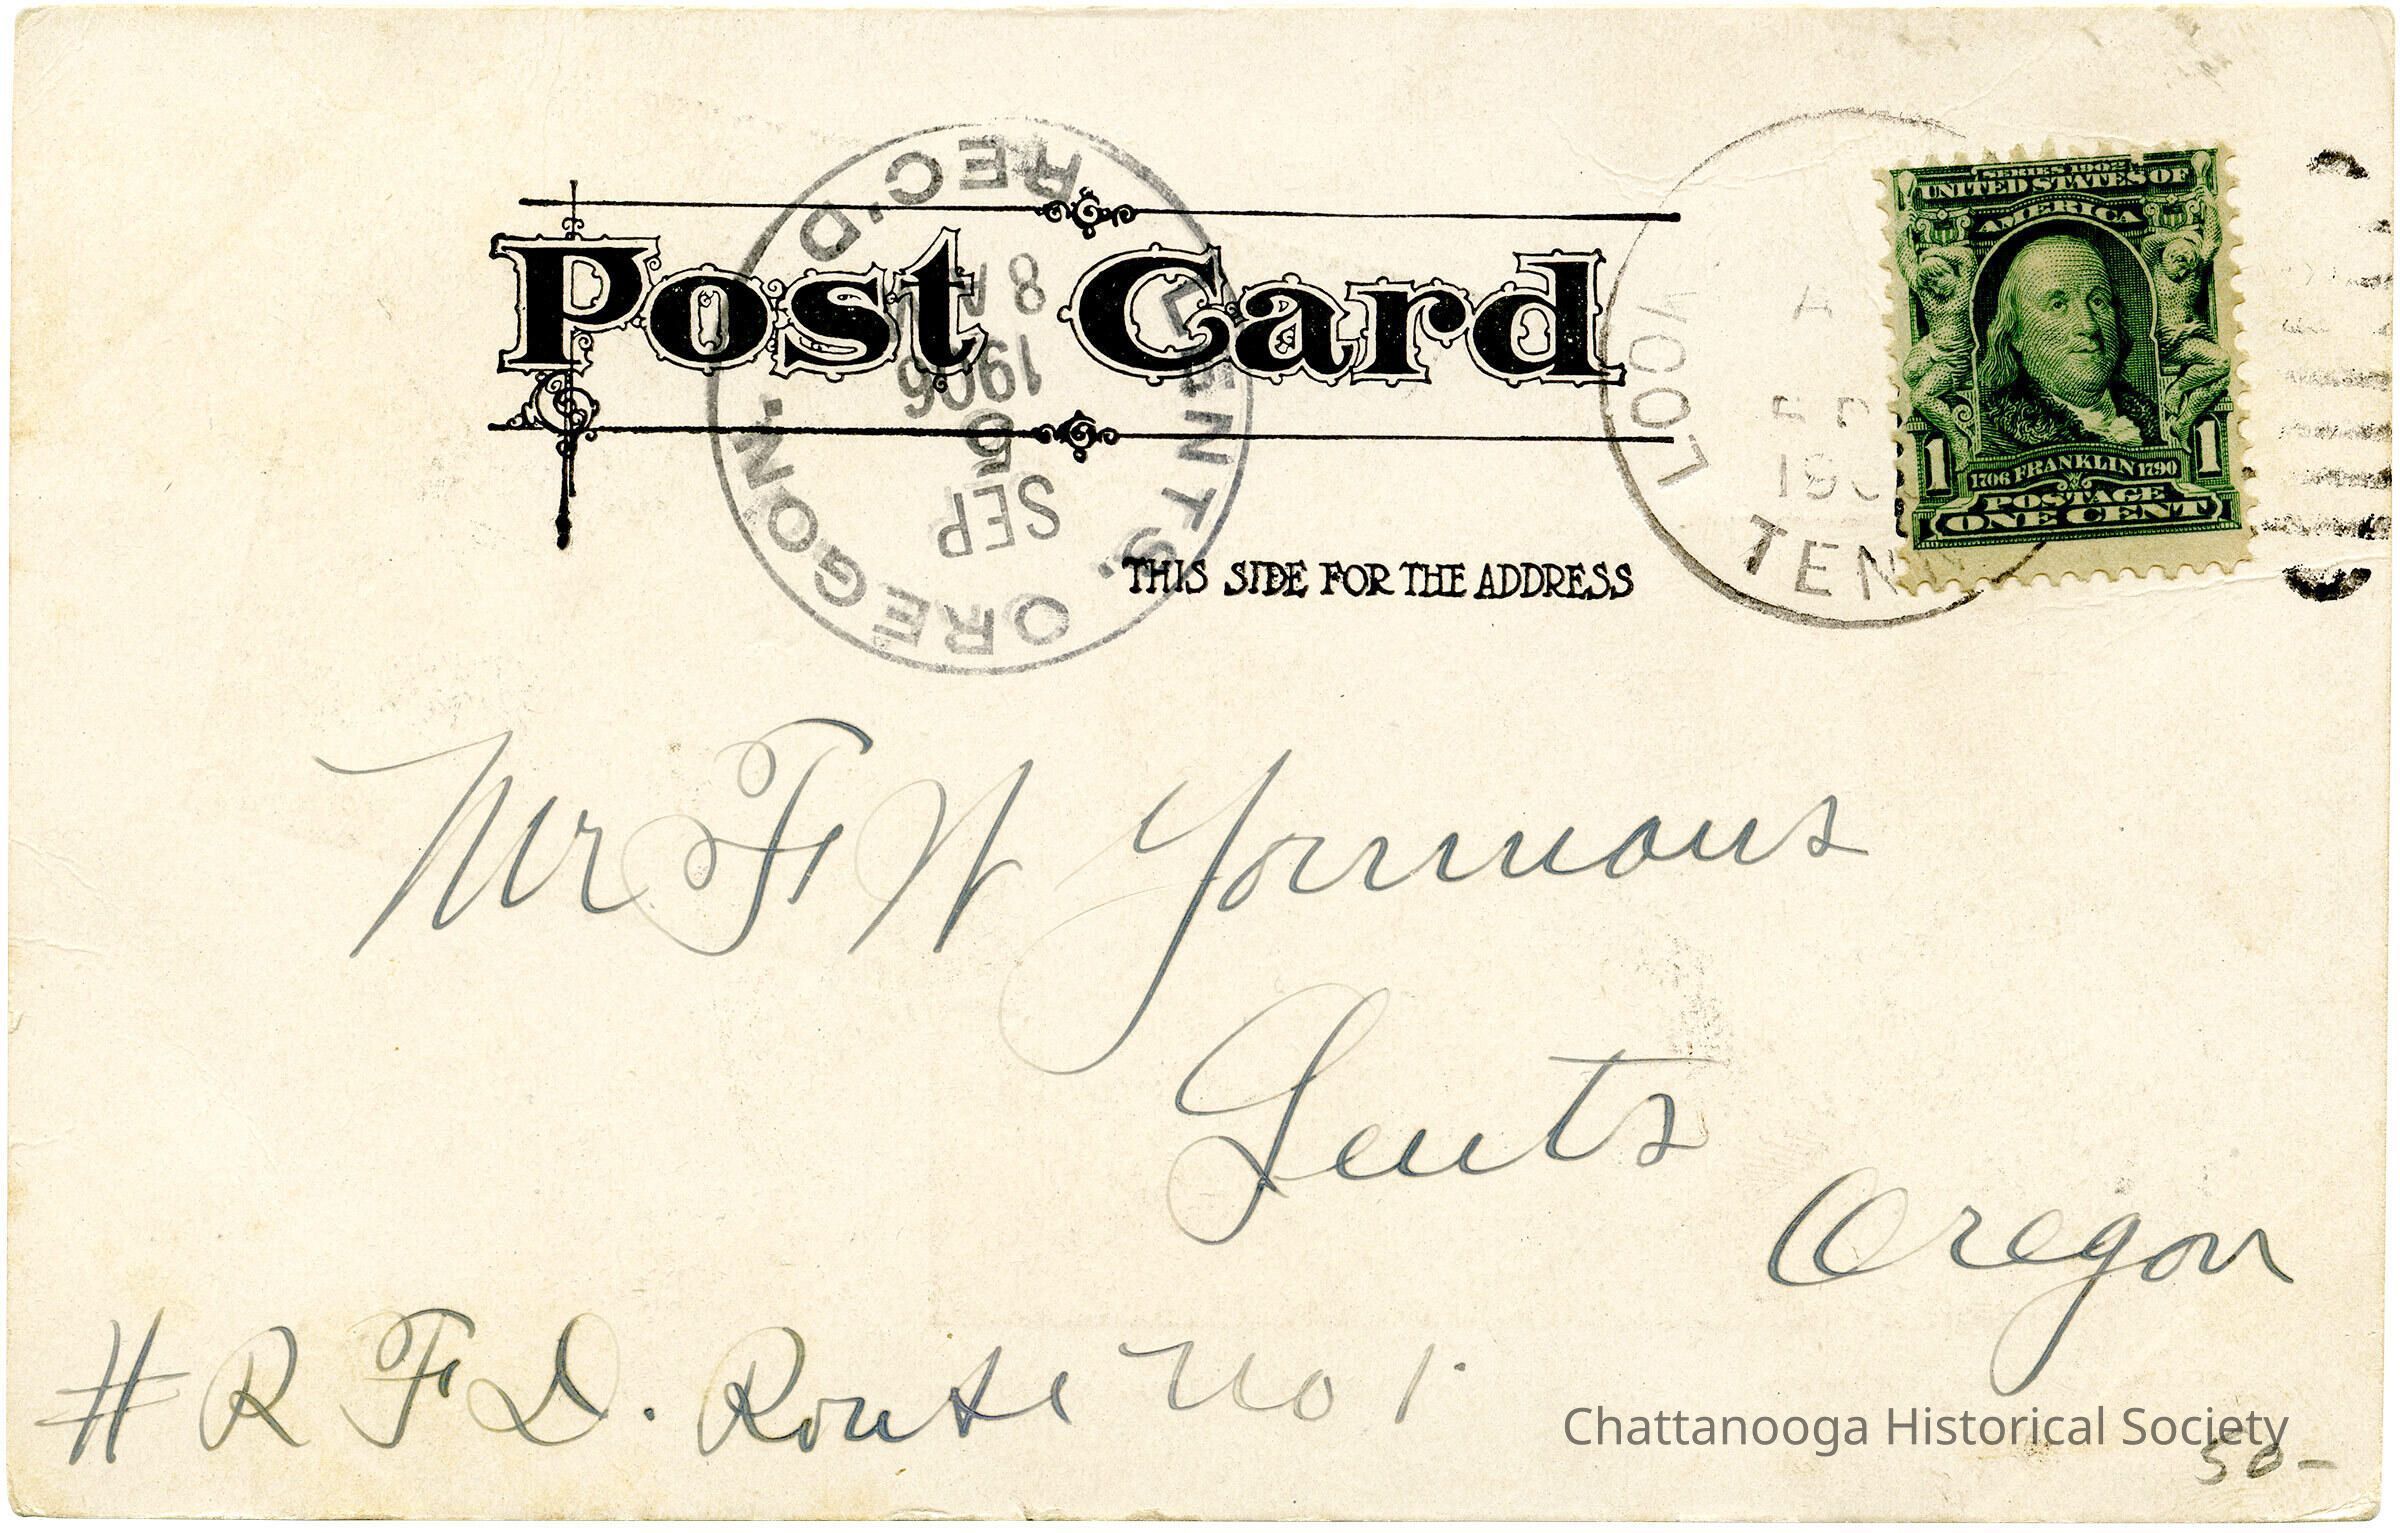 REC'D.
8 A
1906
5
SEP
LENTS. OREGON.
Post Card
THIS SIDE FOR THE ADDRESS
LOOK
TENN
SERIES 1902
UNITED STATES OF
AMERICA
1 1
1706 FRANKLIN 1790
POSTAGE
ONE CENT
Mr F W Yormous
Lents
Oregon
# R F D. Route No 1.
Chattanooga Historical Society
50-